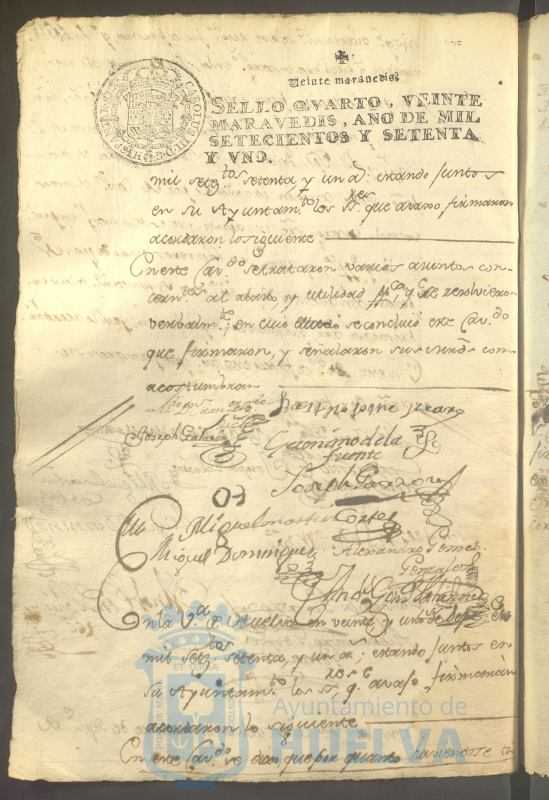 Veinte maravedis.
SELLO QVARTO, VEINTE
MARAVEDIS, AÑO DE MIL
SETECIENTOS Y SETENTA
Y VNO.
CAROLUS III
mil sete.tos setenta y un a.s; estando juntos
en su Ayuntam.to los SS.res que avaxo firmaran
acordaron lo siguiente
En este Cav.do se trataron varios asuntos con-
cern.tes al abasto, y utilidad pp.ca q.e se resolvieron
verbalm.te, en cuio se concluió este Cav.do
que firmaron, y señalaron sus mrds como
acostumbran
Joseph
Geronimo de la
Fuente
Joseph
Miguel Martin Cortes
Miguel Dominguez Alexandro Gomez
Gonzalez
En la V.a de Huelva en veinte y uno
mil sete.tos setenta y un a.s; estando juntos en
su Ayuntam.to los SS.res q.e avaxo firmaran
acordaron lo siguiente
En este Cav.do se dixo que por quanto haviendose
Ayuntamiento de
HUELVA